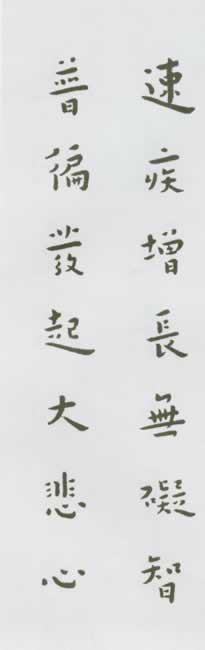 速疾增長無礙智
普徧發起大悲心